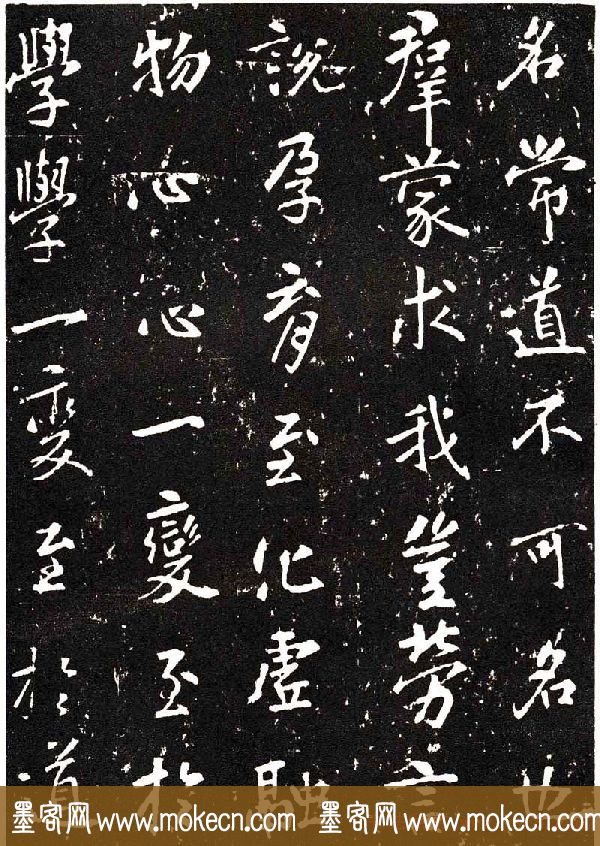 名常道不可名也
羣蒙求我豈勞言
說孕育至化虛融
物心心一變至於
學學一變至於道
墨客网 www.mokecn.com 墨客网 www.mokecn.com